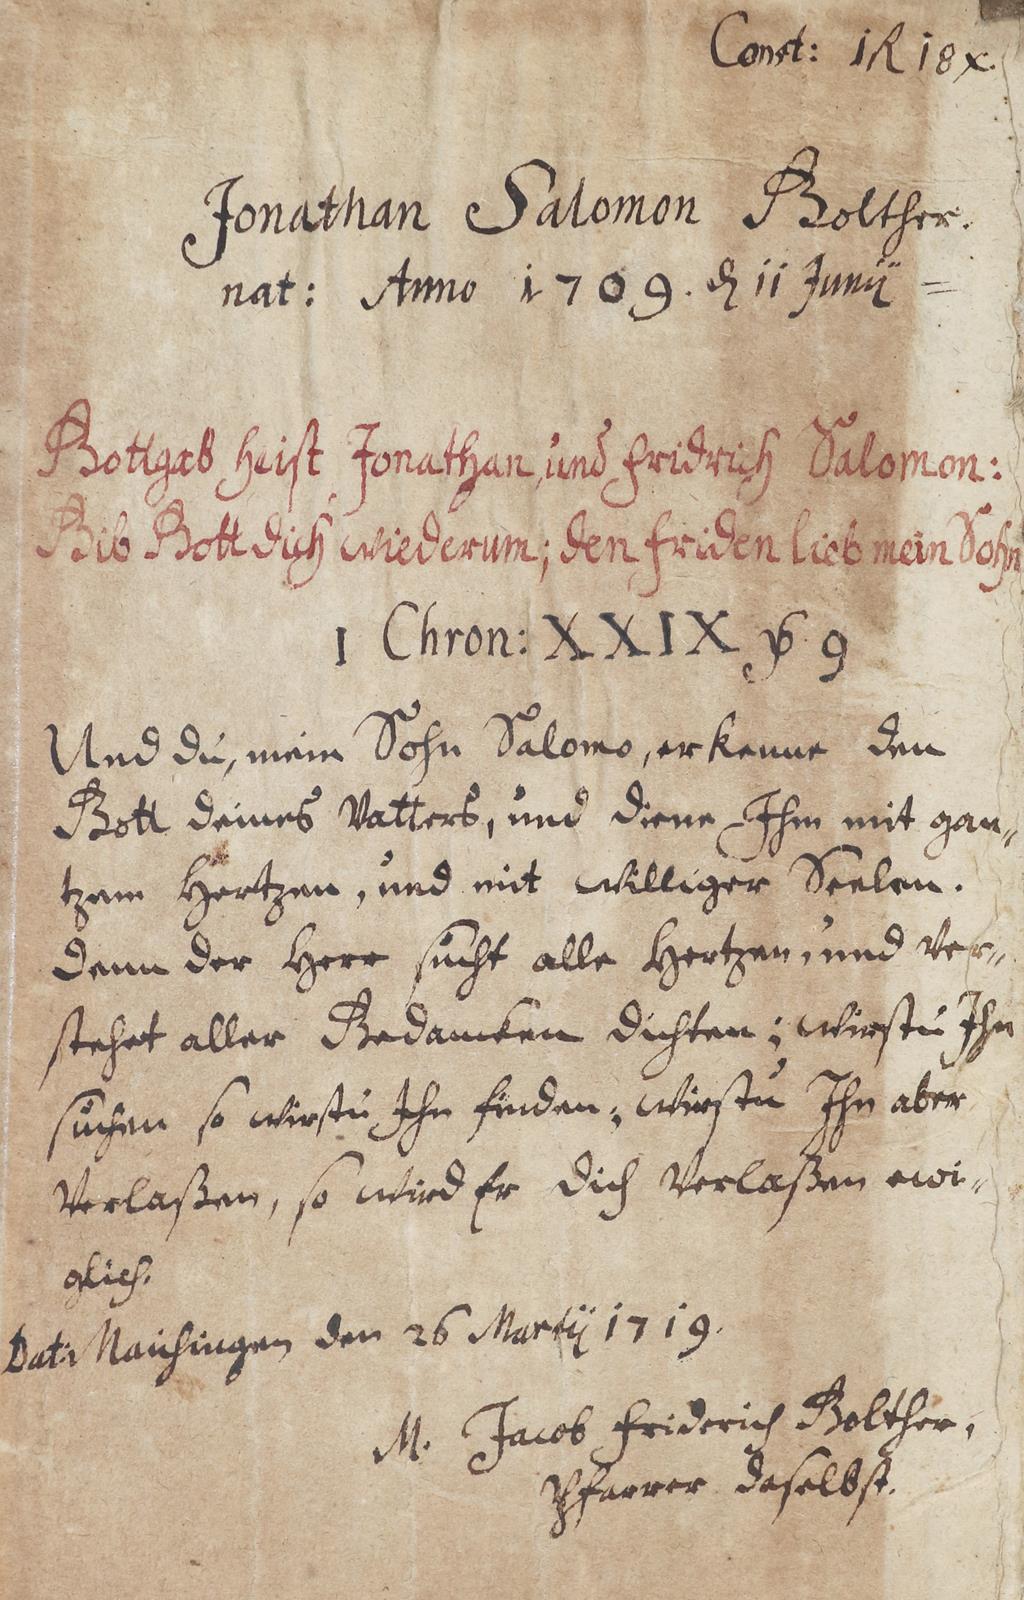 Const: 1 R 18 x.
Jonathan Salomon Golther.
nat: Anno 1709. d 11 Junij =
Gottgab heist Jonathan, und fridrich Salomon:
Gib Gott dich wiederum; den friden lieb mein Sohn
1 Chron: XXIX ℣ 9
Und du, mein Sohn Salomo, erkenne den
Gott deines Vatters, und diene Ihm mit gan„
tzem Hertzen, und mit williger Seelen.
denn der Herr sucht alle Hertzen, und ver„
stehet aller Gedancken dichten; wirstu Ihn
suchen so wirstu Ihn finden; wirstu Ihn aber
verlaßen, so wird Er dich verlaßen ewi„
glich.
Dat: Maichingen den 26 Martij 1719.
M. Jacob friderich Golther,
Pfarrer daselbst.